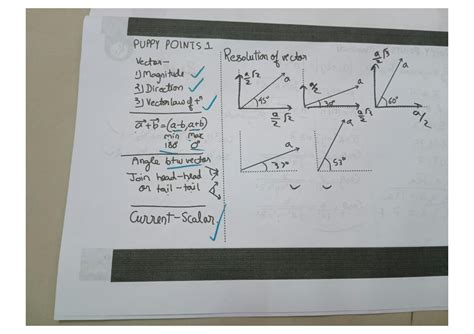 PUPPY POINTS 1
Vector-
1) Magnitude
2) Direction
3) Vector law of +ⁿ
a⃗+b⃗=(a-b, a+b)
min max
180° 0°
Angle btw vector
Join head-head
or tail-tail
Current-Scalar
Resolution of vector
a/2 √2
a
45°
a/2 √2
a/2
a
30°
a/2 √3
a/2 √3
a
60°
a/2
a
37°
a
53°